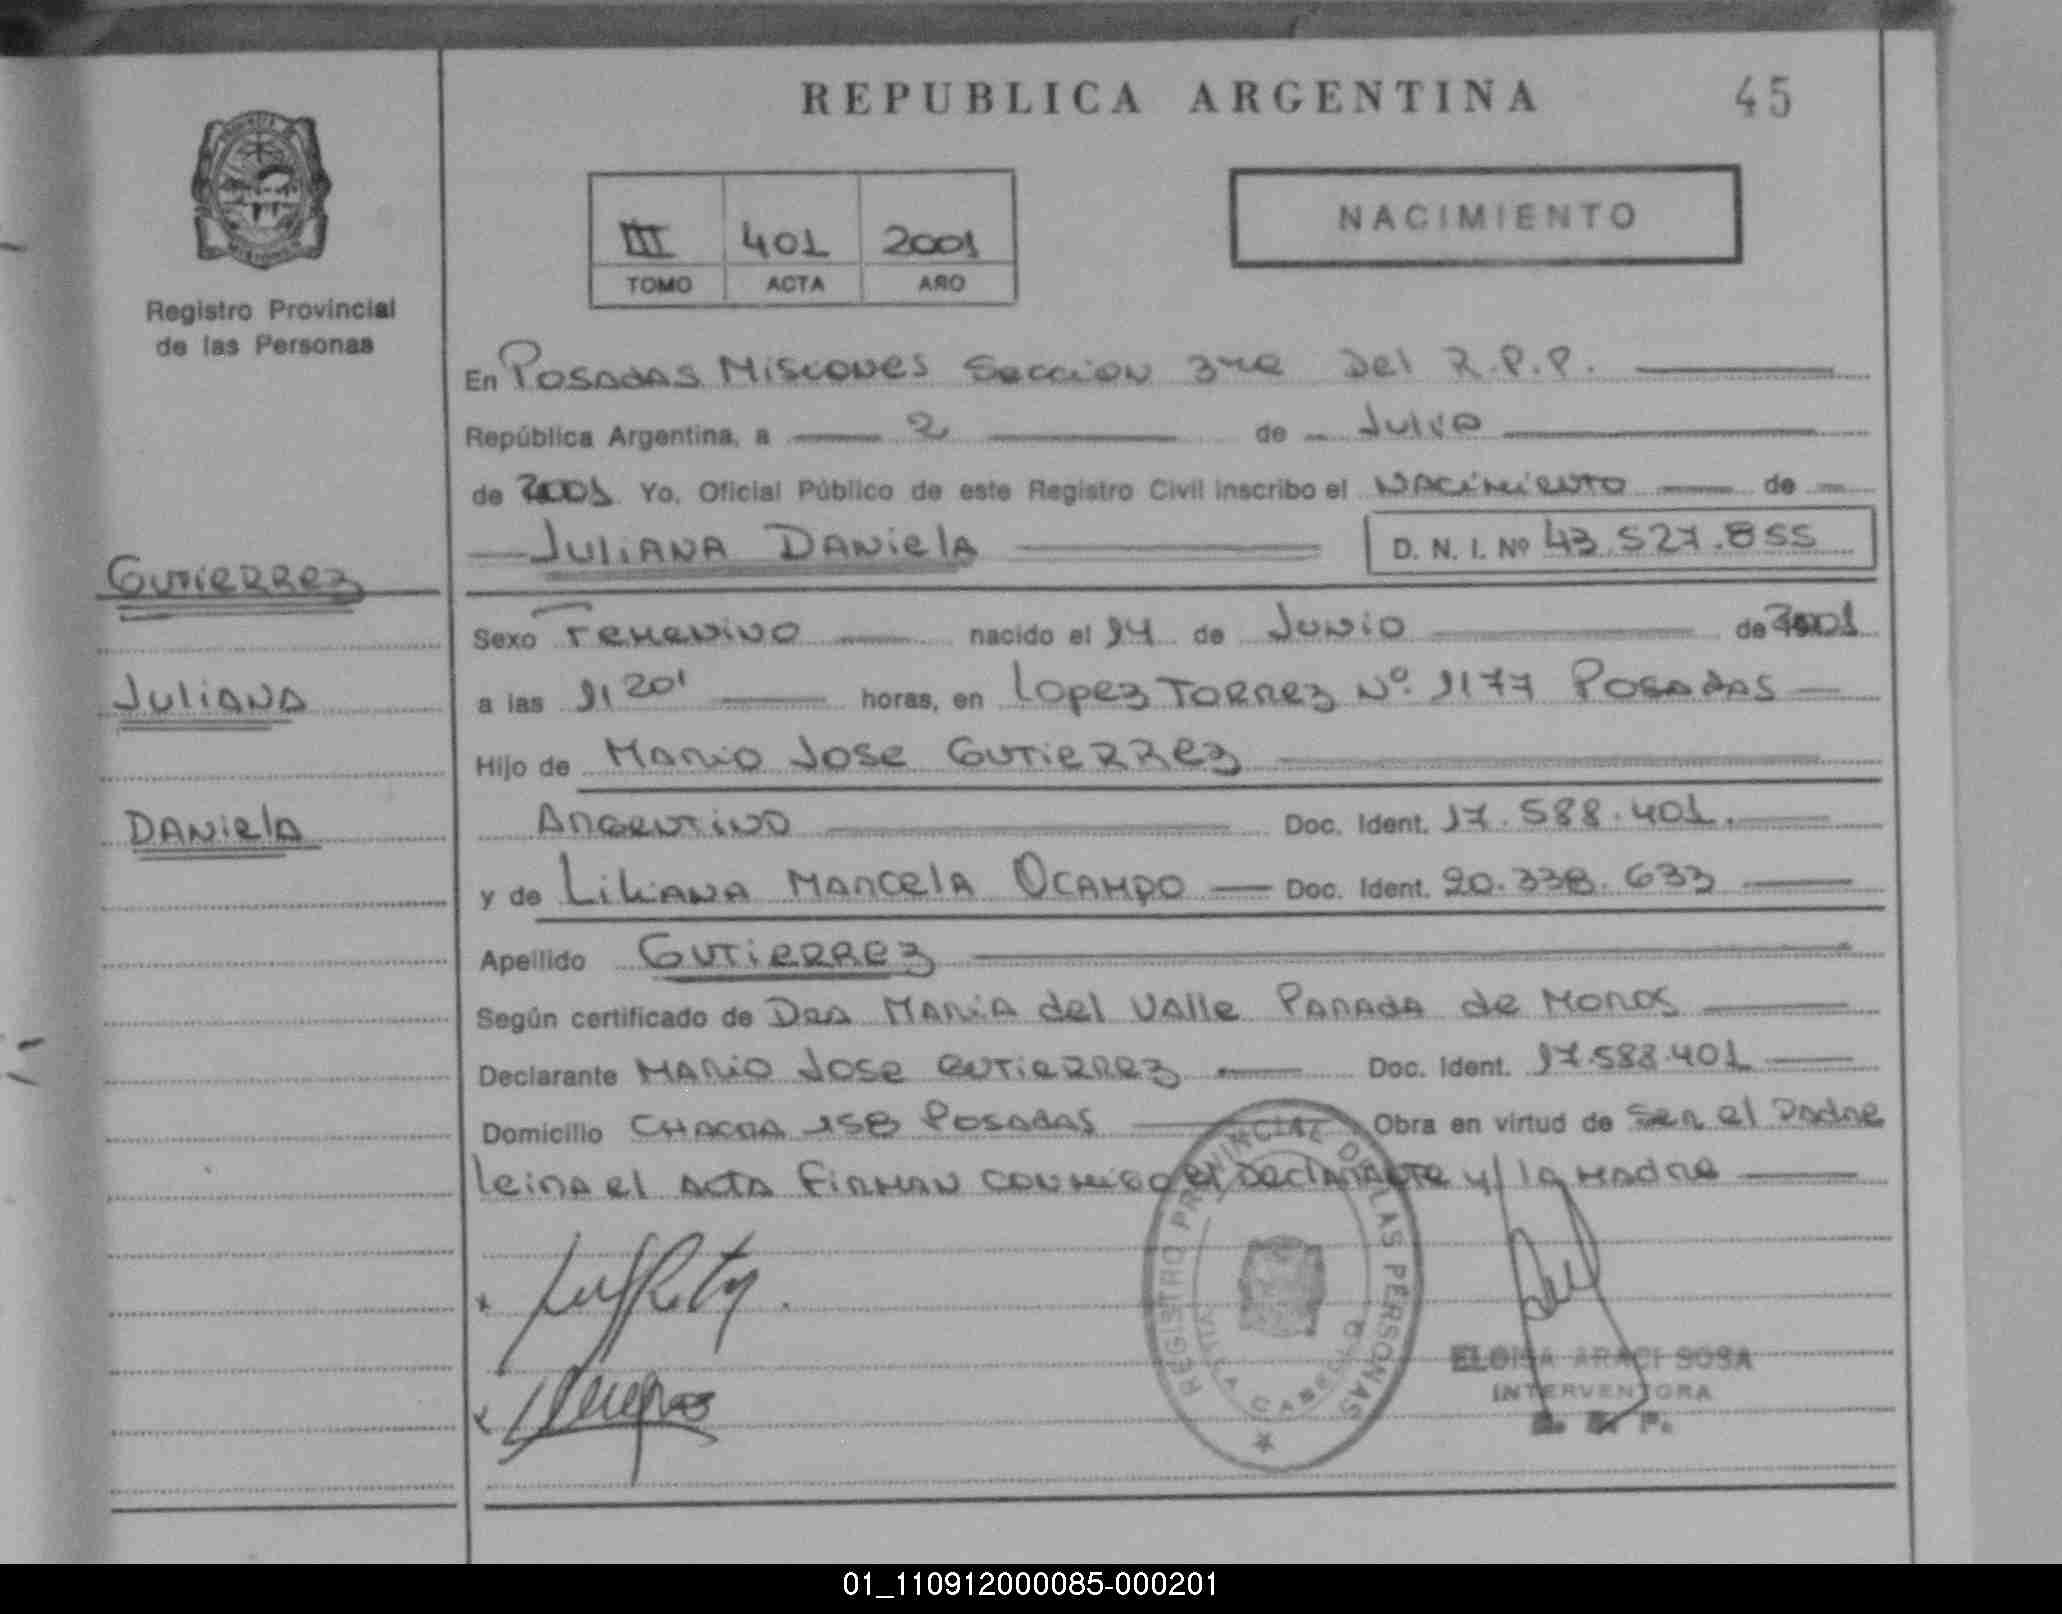 REPUBLICA ARGENTINA
45
NACIMIENTO
III 401 2001
TOMO ACTA AÑO
Registro Provincial
de las Personas
En Posadas Misiones Seccion 3ra Del R.P.P.
República Argentina, a 2 de Julio
de 2001 Yo, Oficial Público de este Registro Civil inscribo el Nacimiento de
Juliana Daniela D. N. I. Nº 43.527.855
Gutierrez
Juliana
Daniela
Sexo Femenino nacido el 14 de Junio de 2001
a las 11 20' horas, en Lopez Torrez Nº. 1177 Posadas
Hijo de Mario Jose Gutierrez
Argentino Doc. Ident. 17.588.401.
y de Liliana Marcela Ocampo Doc. Ident. 20.338.633
Apellido Gutierrez
Según certificado de Dra Maria del Valle Parada de Moros
Declarante Mario Jose Gutierrez Doc. Ident. 17.588.401
Domicilio Chacra 158 Posadas Obra en virtud de Ser el Padre
Leida el Acta Firman conmigo el Declarante y/ la Madre
REGISTRO PROVINCIAL DE LAS PERSONAS
VILLA CABELLO
ELOISA ARACI SOSA
INTERVENTORA
01_110912000085-000201